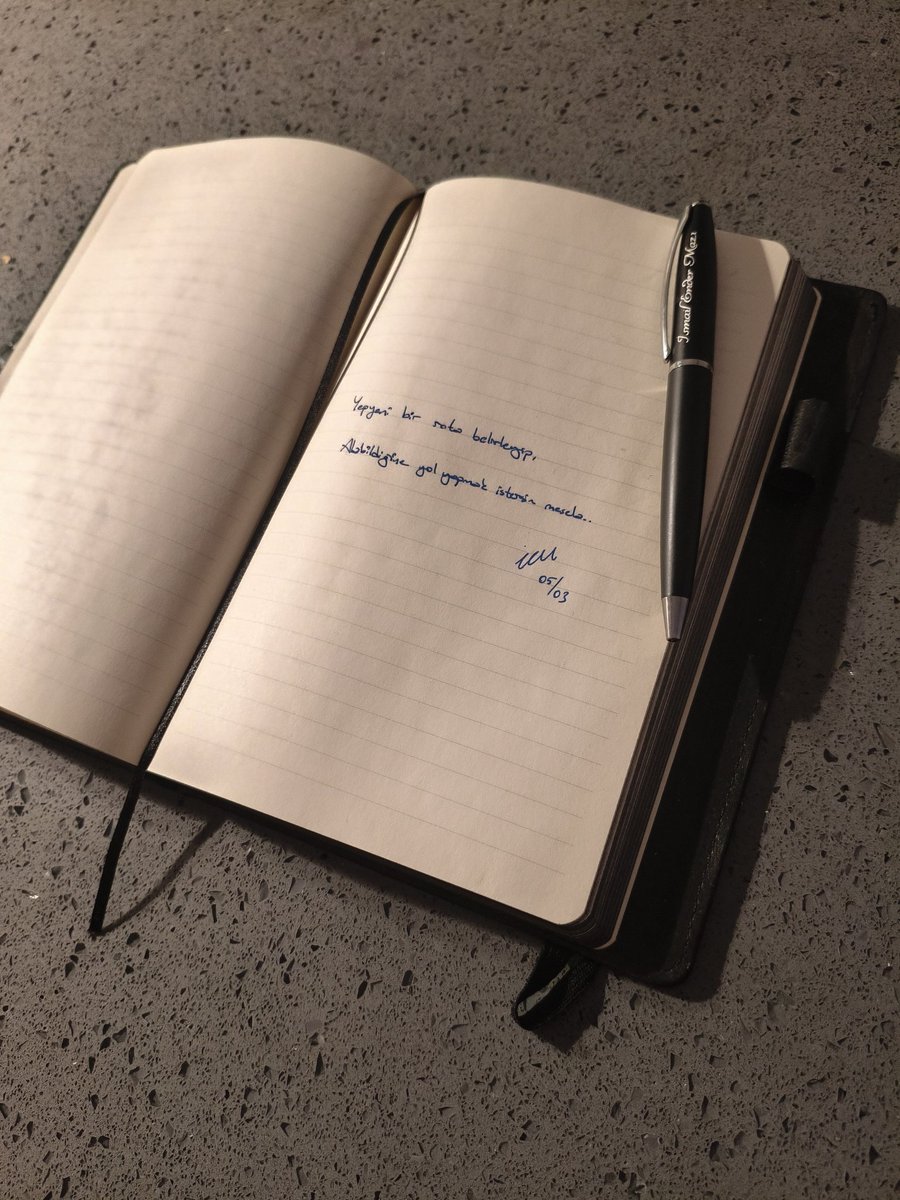 İsmail Ender Mazı
Yepyeni bir rota belirleyip,
Alabildiğine yol yapmak istersin mesela..
05/03